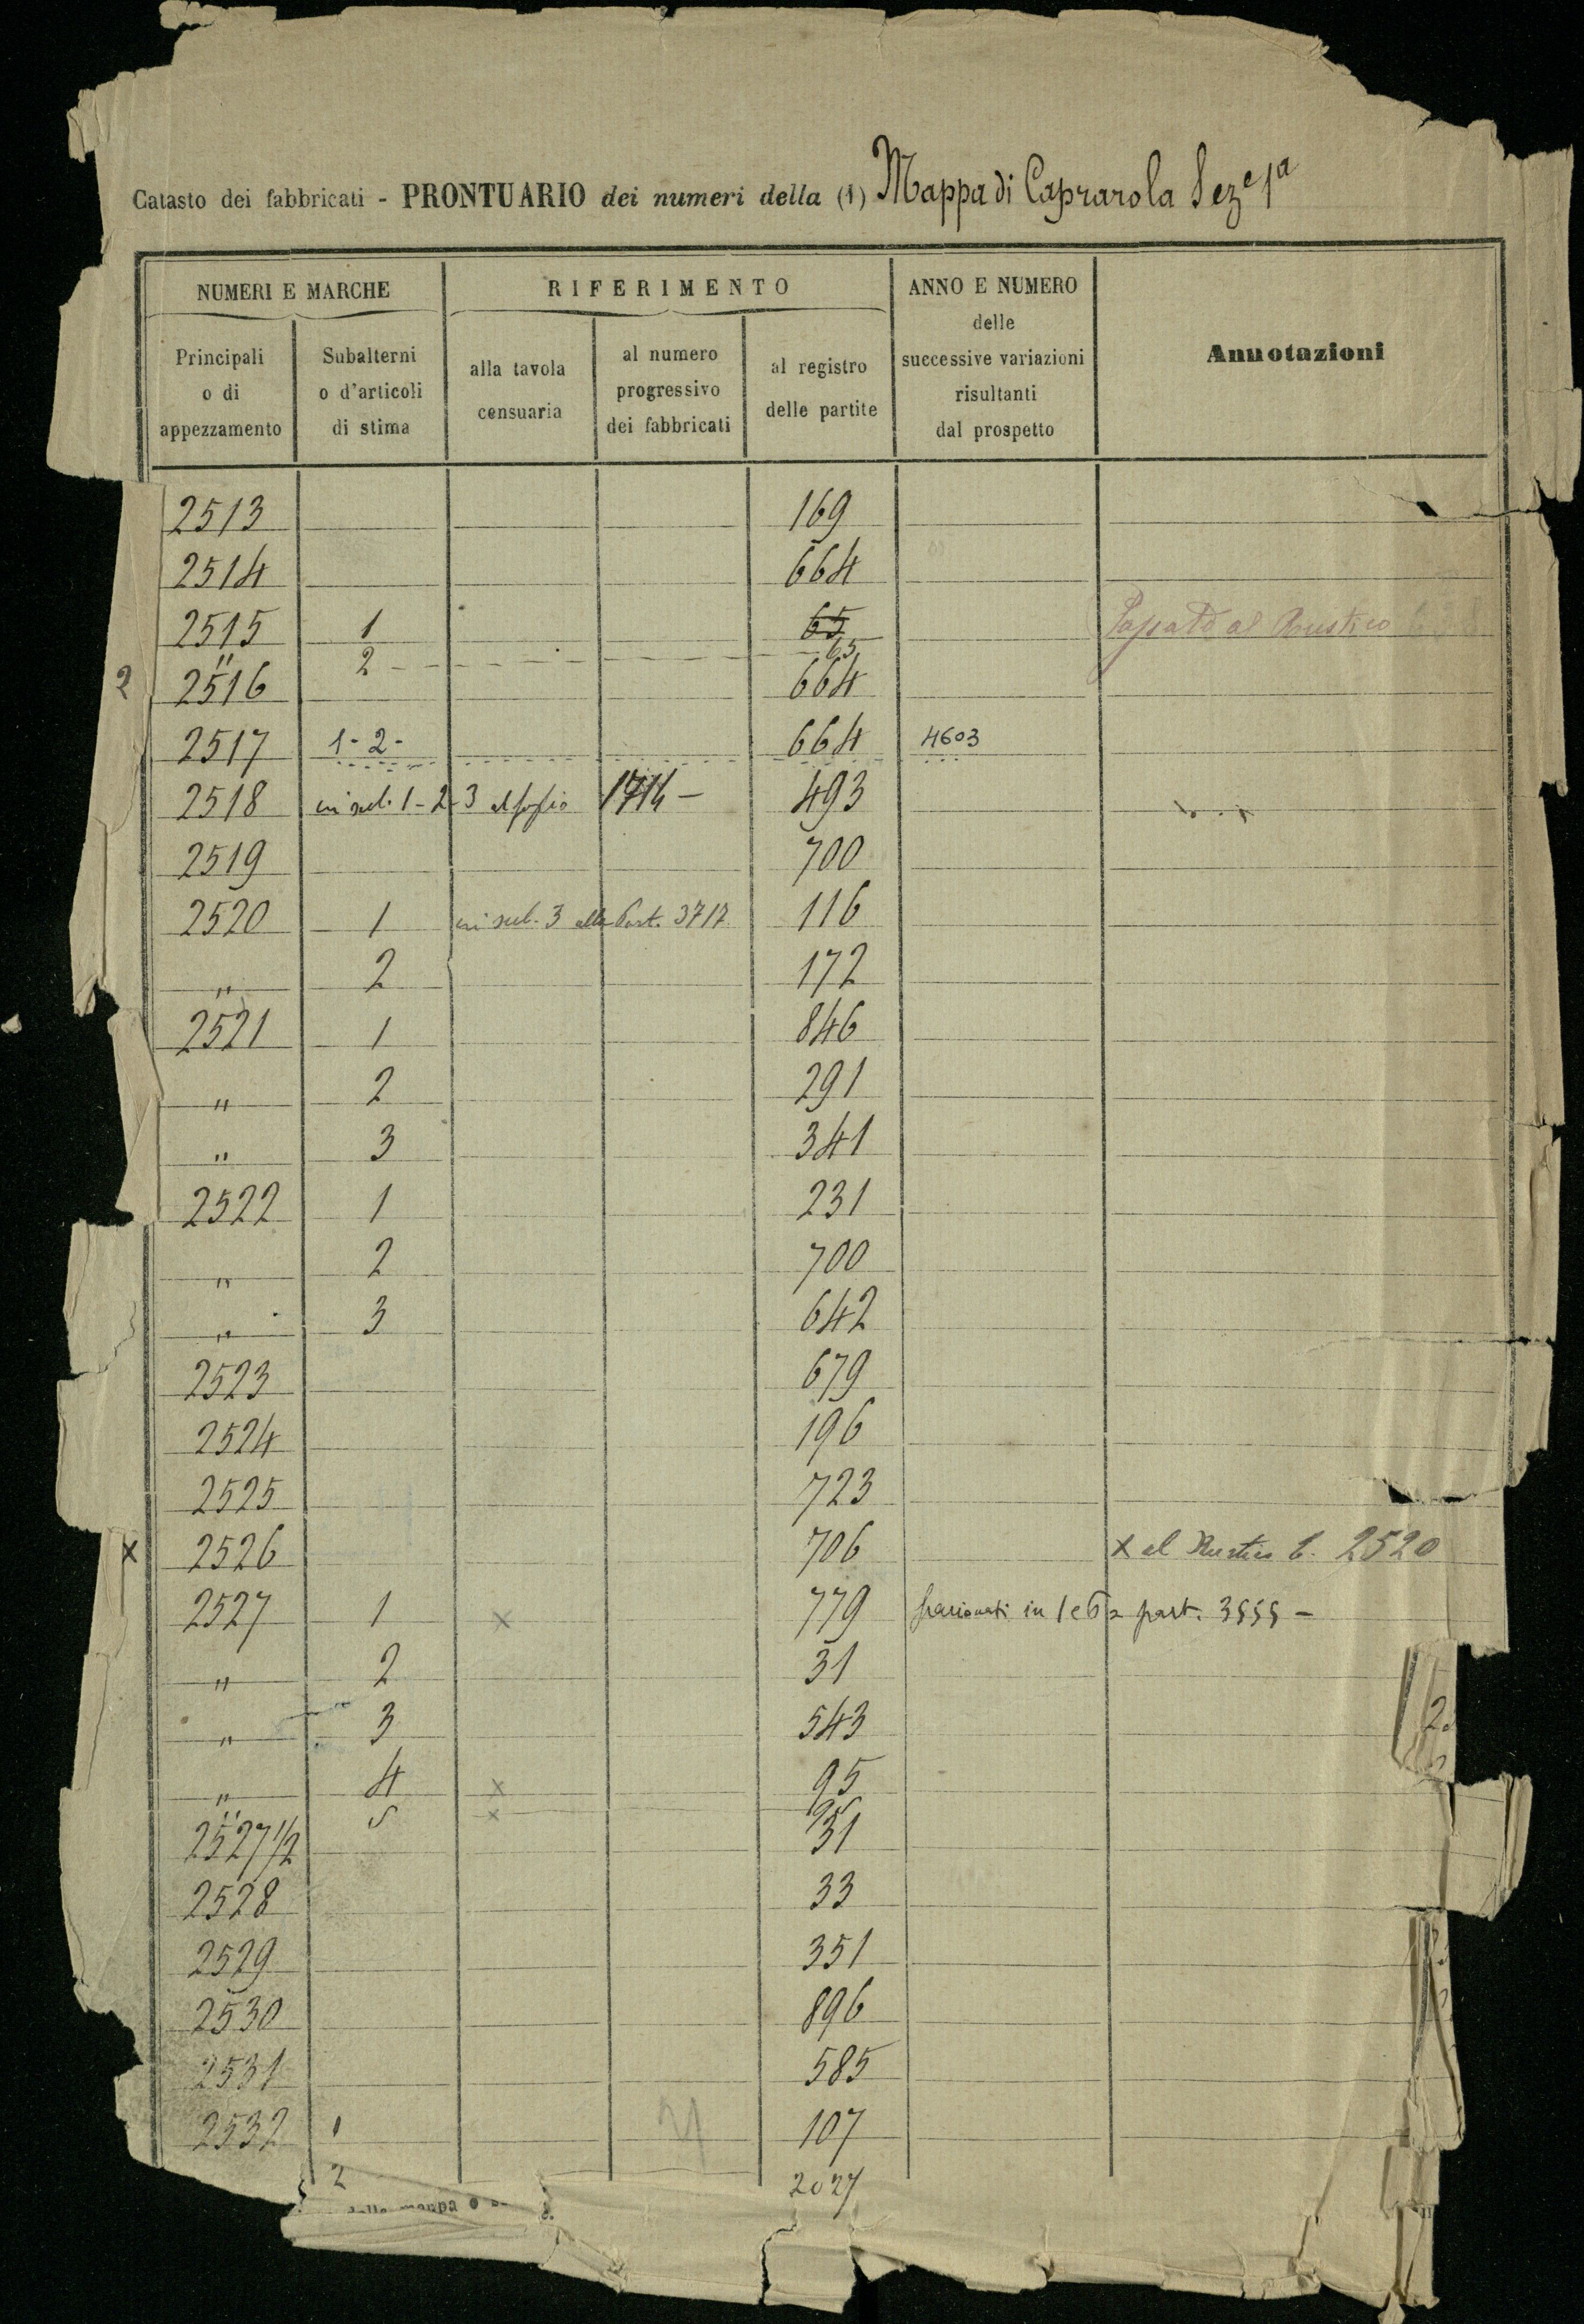 Catasto dei fabbricati - PRONTUARIO dei numeri della (1) Mappa di Caprarola Sez.e 1a
NUMERI E MARCHE
Principali o di appezzamento
Subalterni o d'articoli di stima
RIFERIMENTO
alla tavola censuaria
al numero progressivo dei fabbricati
al registro delle partite
ANNO E NUMERO delle successive variazioni risultanti dal prospetto
Annotazioni
2513 169
2514 664
2515 1 65 Passato al Rustico
" 2 65
2 2516 664
2517 1-2- 664 4603
2518 sub. 1-2-3 al 493
2519 700
2520 1 sub. 3 alla Part. 3717 116
" 2 172
2521 1 846
" 2 291
" 3 341
2522 1 231
" 2 700
" 3 642
2523 679
2524 196
2525 723
x 2526 706 x al Rustico 2520
2527 1 x 779 in 1 e part.
" 2 31
" 3 543
" 4 x 95
" 5 x 95
2527 1/2 31
2528 33
2529 351
2530 896
2531 585
2532 1 107
2 2027
della mappa o